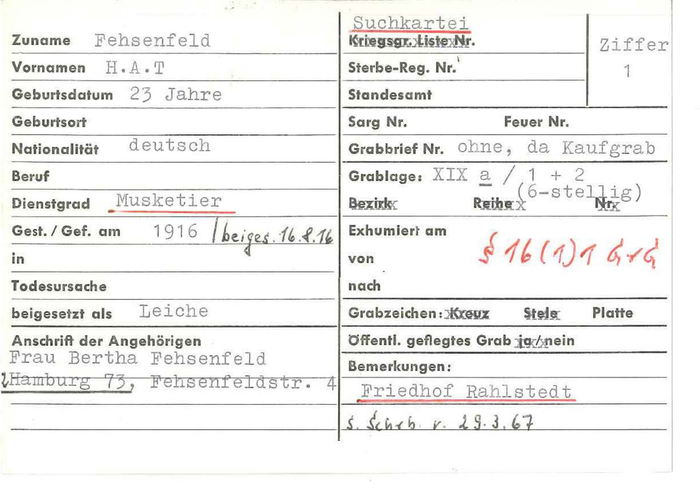 Zuname Fehsenfeld
Vornamen H.A.T
Geburtsdatum 23 Jahre
Geburtsort
Nationalität deutsch
Beruf
Dienstgrad Musketier
Gest. / Gef. am 1916 / beiges. 16.8.16
in
Todesursache
beigesetzt als Leiche
Anschrift der Angehörigen
Frau Bertha Fehsenfeld
Hamburg 73, Fehsenfeldstr. 4
Suchkartei
Kriegsgr. Liste Nr.
Sterbe-Reg. Nr.
Standesamt
Ziffer
1
Sarg Nr. Feuer Nr.
Grabbrief Nr. ohne, da Kaufgrab
Grablage: XIX a / 1 + 2
(6-stellig)
Bezirk Reihe Nr.
Exhumiert am
von
§ 16 (1) 1 GrG
nach
Grabzeichen: Kreuz Stele Platte
Öffentl. geflegtes Grab ja/nein
Bemerkungen:
Friedhof Rahlstedt
s. Schrb. v. 29.3.67